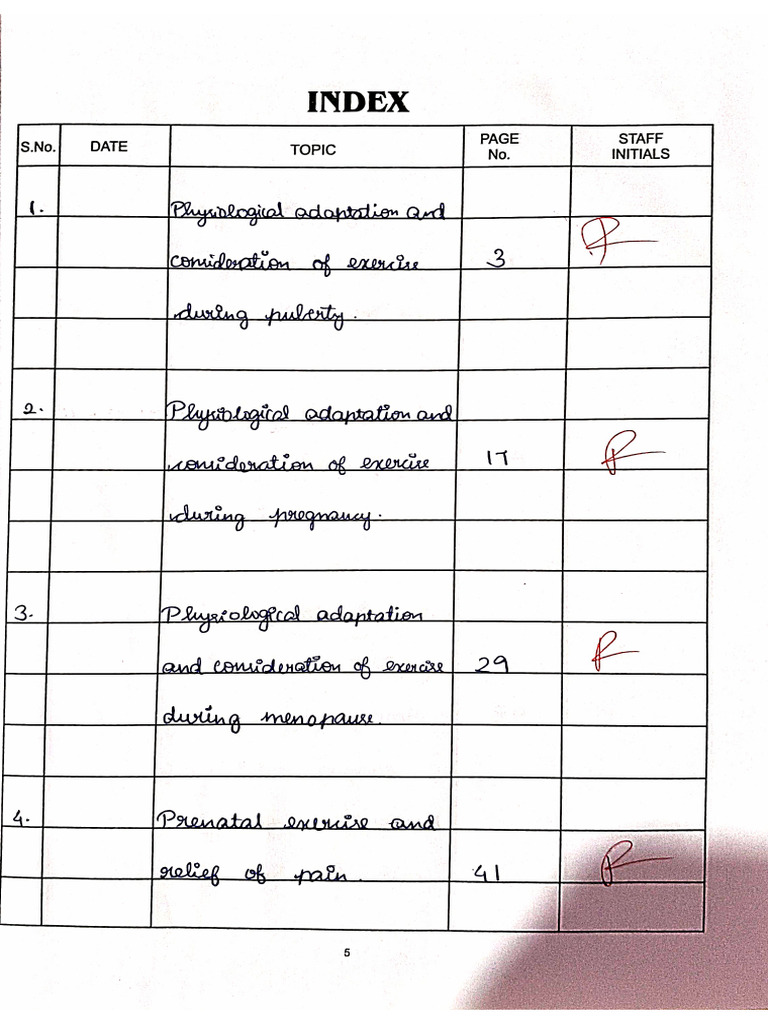 INDEX
S.No. DATE TOPIC PAGE No. STAFF INITIALS
1. Physiological adaptation and
consideration of exercise 3
during puberty.
2. Physiological adaptation and
consideration of exercise 17
during pregnancy.
3. Physiological adaptation
and consideration of exercise 29
during menopause.
4. Prenatal exercise and
relief of pain. 41
5